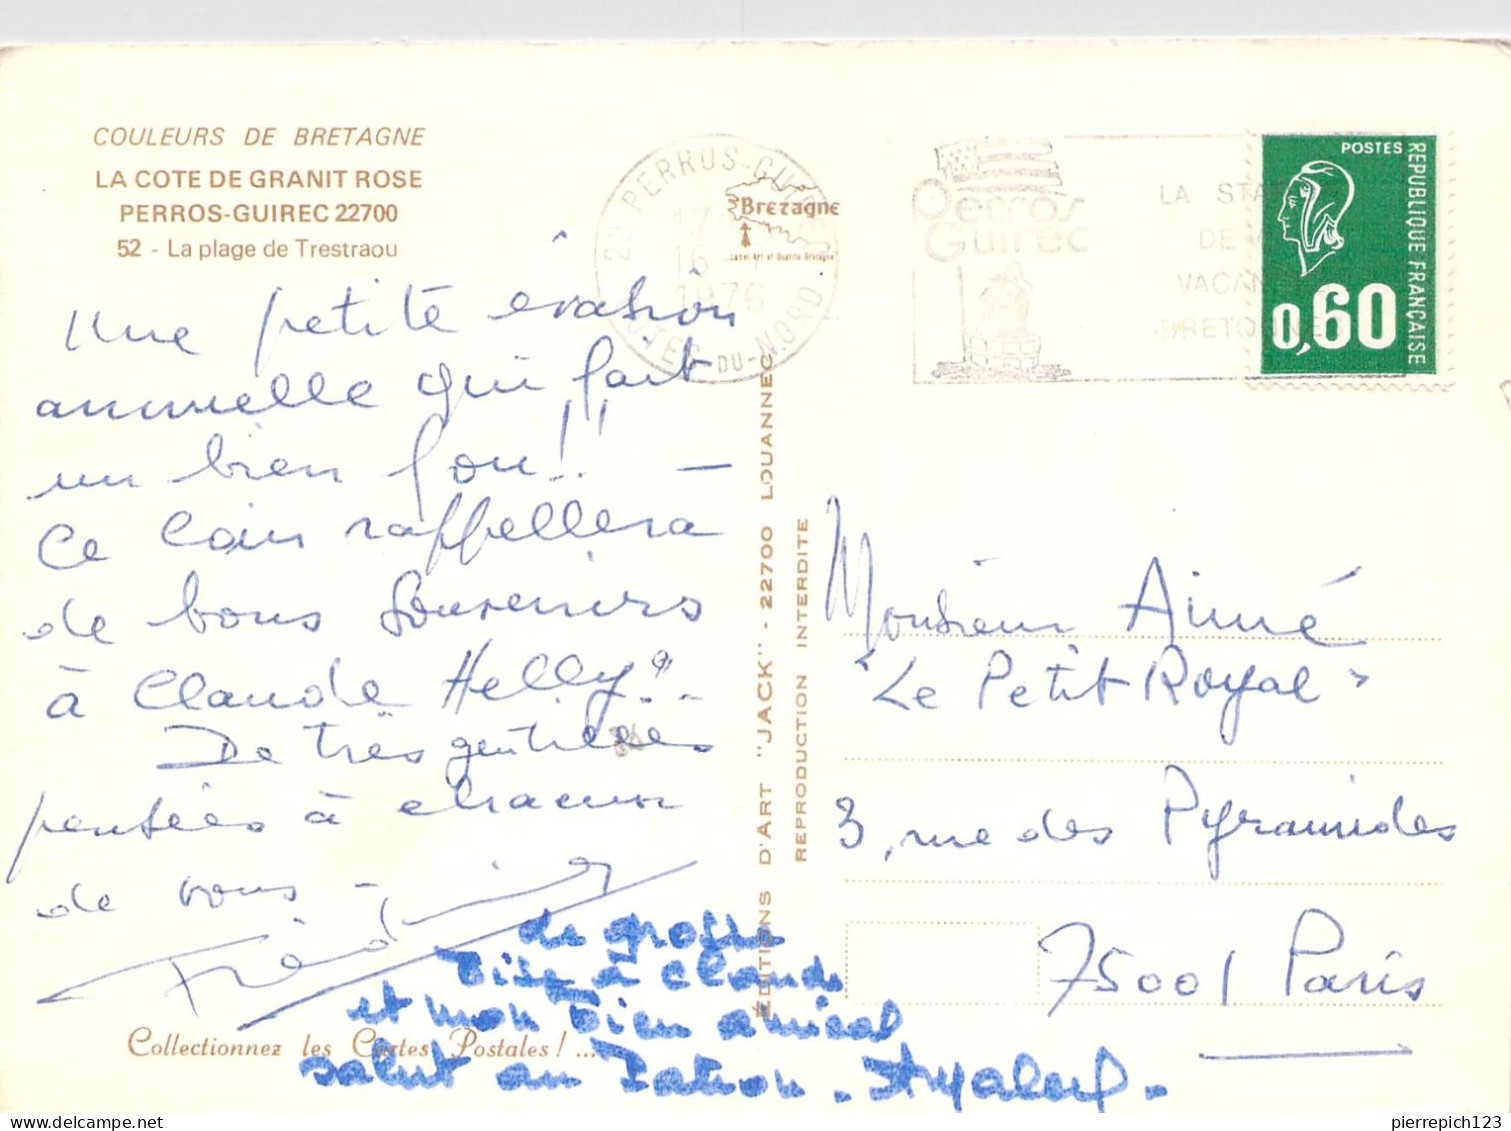 COULEURS DE BRETAGNE
LA COTE DE GRANIT ROSE
PERROS-GUIREC 22700
52 - La plage de Trestraou
Une petite évasion
annuelle qui fait
un bien fou!! -
Ce coin rappellera
de bons souvenirs
à Claude Helly? -
De très gentilles
pensées à chacun
de vous -
de grosse
bise à Claude
et mon bien amical
salut au Patron -
Collectionnez les Cartes Postales! ...
22 PERROS-GUIREC
16
1976
COTES-DU-NORD
Bretagne
Label Art et Qualité Bretagne
Perros
Guirec
LA STA
DE
VACAN
BRETONNE
POSTES
REPUBLIQUE FRANÇAISE
0,60
ÉDITIONS D'ART "JACK" - 22700 LOUANNEC
REPRODUCTION INTERDITE
Monsieur Aimé
"Le Petit Royal"
3, rue des Pyramides
75001 Paris
pierrepich123